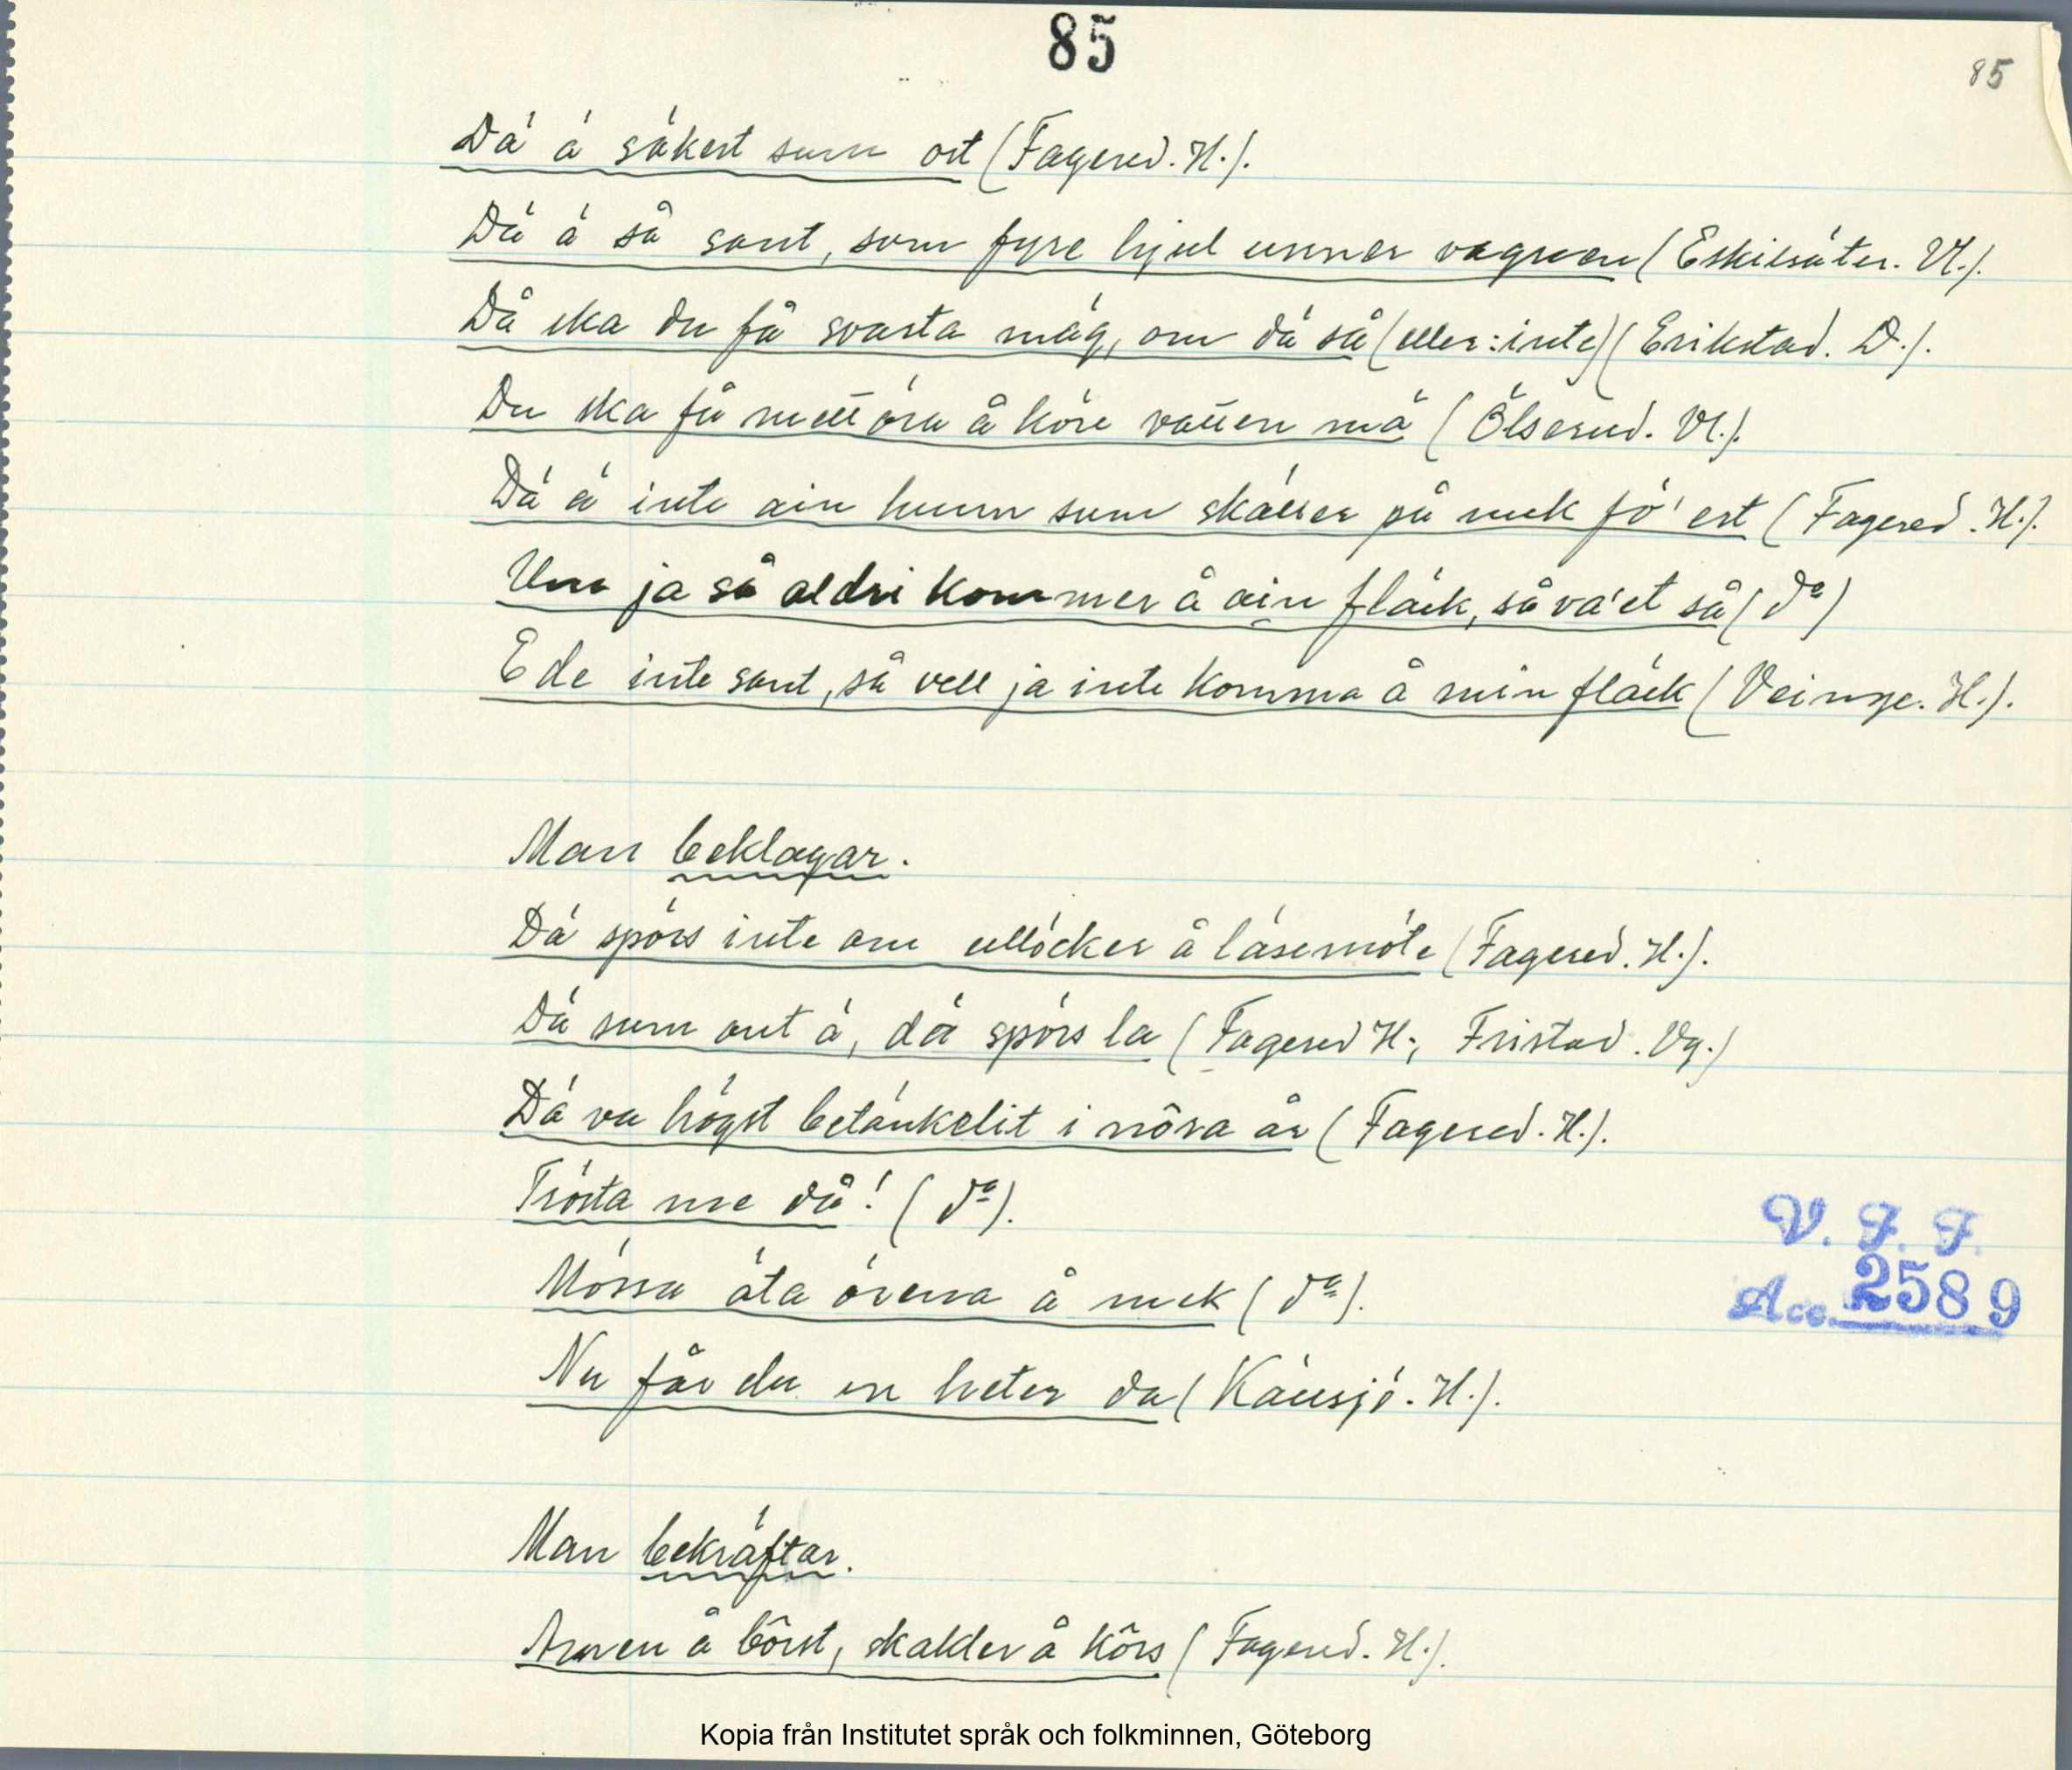 85
85
Dä ä säkert sum ost (Fagered. H.).
Dä ä så sant, som fyre hjul unner vagnen (Eskilsäter. Vl.).
Då ska du få svarta mäg, om dä så (eller: inte) (Erikstad. D.).
Du ska få mitt öra å köre vatten mä (Ölserud. Vl.).
Dä ä inte ain hunn sum skäller på mek fö' est (Fagered. H.).
Um ja så aldri kommer å ain fläck, så va'et så (dº)
E de inte sant, så vell ja inte komma å min fläck (Veinge. H.).
Man beklagar.
Dä spörs inte om ullöcker å läsemöte (Fagered. H.).
Dä sum ont ä, dä spörs la (Fagered H., Fristad. Vg.)
Dä va högst betänkelit i nôra år (Fagered. H.).
Trösta me då! (dº).
Mössa äta örena å mek (dº).
Nu får du en heter da (Källsjö. H.).
V. F. F.
Acc. 2589
Man bekräftar.
Armen å bôrst, skalder å kôrs (Fagered. H.).
Kopia från Institutet språk och folkminnen, Göteborg